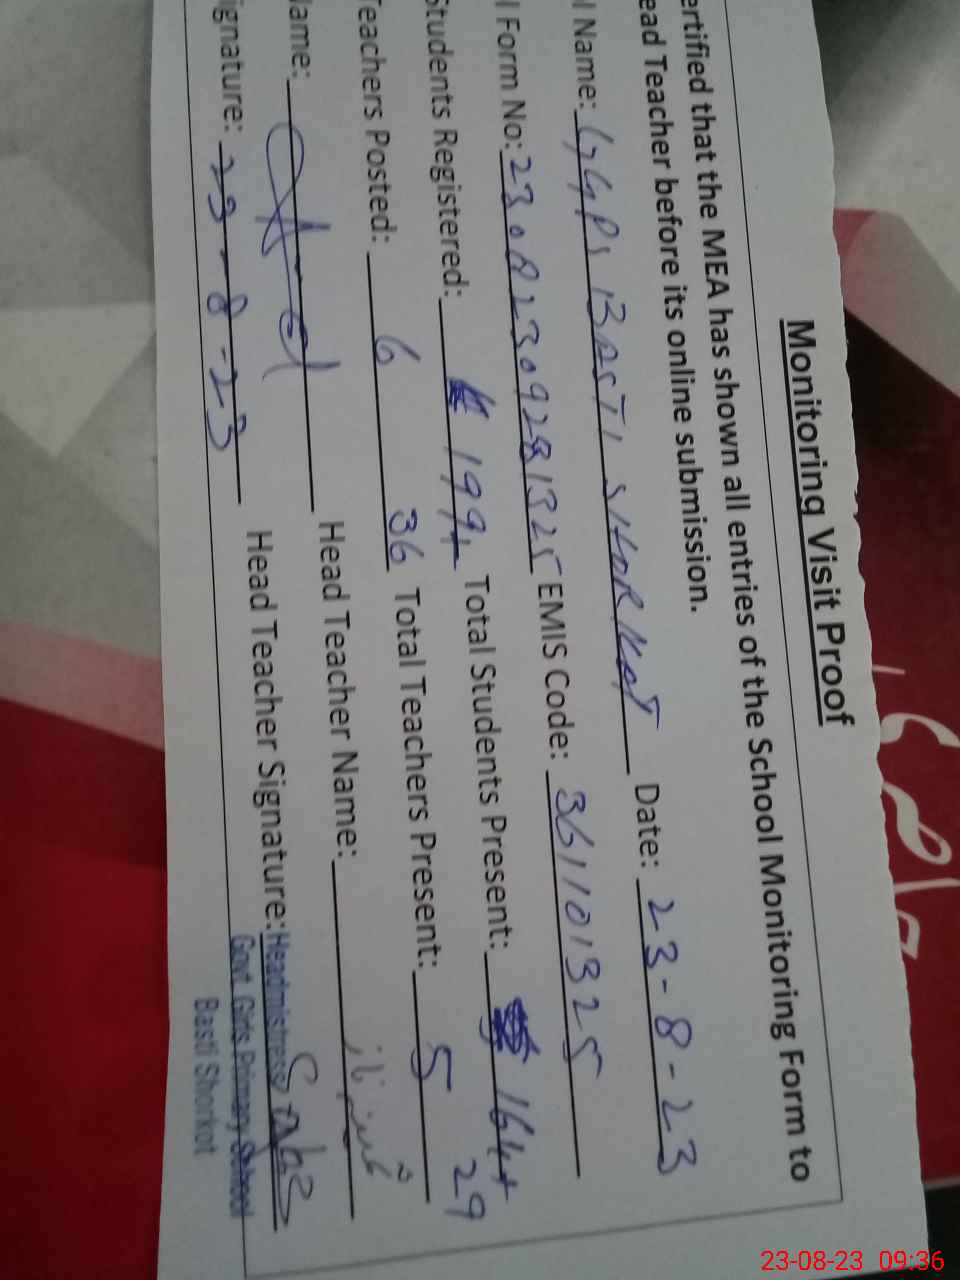 Monitoring Visit Proof
ertified that the MEA has shown all entries of the School Monitoring Form to
ead Teacher before its online submission.
l Name: GGPS BASTI SHORKOT Date: 23-8-23
l Form No: 23082309281325 EMIS Code: 361101325
Students Registered: 199+ Total Students Present: 164+
36 29
Teachers Posted: 6 Total Teachers Present: 5
Name: Head Teacher Name:
ignature: 23-8-23 Head Teacher Signature:
Headmistress
Govt. Girls Primary School
Basti Shorkot
23-08-23 09:36